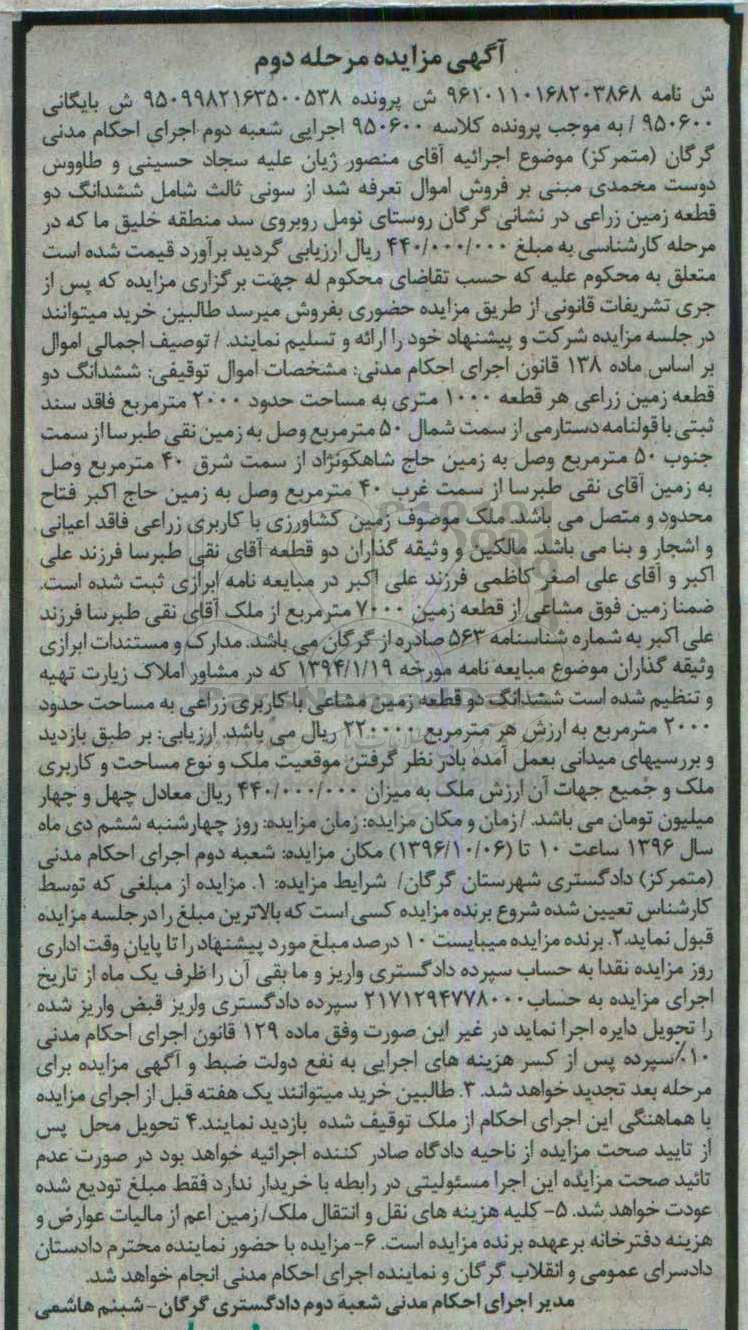 آگهی مزایده مرحله دوم
ش نامه ۹۶۱۰۱۱۰۱۶۸۲۰۳۸۶۸ ش پرونده ۹۵۰۹۹۸۲۱۶۳۵۰۰۵۳۸ ش بایگانی
۹۵۰۶۰۰ / به موجب پرونده کلاسه ۹۵۰۶۰۰ اجرایی شعبه دوم اجرای احکام مدنی
گرگان (متمرکز) موضوع اجرائیه آقای منصور ژیان علیه سجاد حسینی و طاووس
دوست محمدی مبنی بر فروش اموال تعرفه شد از سوئی ثالث شامل ششدانگ دو
قطعه زمین زراعی در نشانی گرگان روستای نومل روبروی سد منطقه خلیق ما که در
مرحله کارشناسی به مبلغ ۴۴۰/۰۰۰/۰۰۰ ریال ارزیابی گردید برآورد قیمت شده است
متعلق به محکوم علیه که حسب تقاضای محکوم له جهت برگزاری مزایده که پس از
جری تشریفات قانونی از طریق مزایده حضوری بفروش میرسد طالبین خرید میتوانند
در جلسه مزایده شرکت و پیشنهاد خود را ارائه و تسلیم نمایند. / توصیف اجمالی اموال
بر اساس ماده ۱۳۸ قانون اجرای احکام مدنی: مشخصات اموال توقیفی: ششدانگ دو
قطعه زمین زراعی هر قطعه ۱۰۰۰ متری به مساحت حدود ۲۰۰۰ مترمربع فاقد سند
ثبتی با قولنامه دستارمی از سمت شمال ۵۰ مترمربع وصل به زمین نقی طبرسا از سمت
جنوب ۵۰ مترمربع وصل به زمین حاج شاهکونژاد از سمت شرق ۴۰ مترمربع وصل
به زمین آقای نقی طبرسا از سمت غرب ۴۰ مترمربع وصل به زمین حاج اکبر فتاح
محدود و متصل می باشد. ملک موصوف زمین کشاورزی با کاربری زراعی فاقد اعیانی
و اشجار و بنا می باشد. مالکین و وثیقه گذاران دو قطعه آقای نقی طبرسا فرزند علی
اکبر و آقای علی اصغر کاظمی فرزند علی اکبر در مبایعه نامه ابرازی ثبت شده است.
ضمنا زمین فوق مشاعی از قطعه زمین ۷۰۰۰ مترمربع از ملک آقای نقی طبرسا فرزند
علی اکبر به شماره شناسنامه ۵۶۳ صادره از گرگان می باشد. مدارک و مستندات ابرازی
وثیقه گذاران موضوع مبایعه نامه مورخه ۱۳۹۴/۱/۱۹ که در مشاور املاک زیارت تهیه
و تنظیم شده است ششدانگ دو قطعه زمین مشاعی با کاربری زراعی به مساحت حدود
۲۰۰۰ مترمربع به ارزش هر مترمربع ۲۲۰۰۰۰ ریال می باشد. ارزیابی: بر طبق بازدید
و بررسیهای میدانی بعمل آمده بادر نظر گرفتن موقعیت ملک و نوع مساحت و کاربری
ملک و جمیع جهات آن ارزش ملک به میزان ۴۴۰/۰۰۰/۰۰۰ ریال معادل چهل و چهار
میلیون تومان می باشد. / زمان و مکان مزایده: زمان مزایده: روز چهارشنبه ششم دی ماه
سال ۱۳۹۶ ساعت ۱۰ تا (۱۳۹۶/۱۰/۰۶) مکان مزایده: شعبه دوم اجرای احکام مدنی
(متمرکز) دادگستری شهرستان گرگان/ شرایط مزایده: ۱. مزایده از مبلغی که توسط
کارشناس تعیین شده شروع برنده مزایده کسی است که بالاترین مبلغ را در جلسه مزایده
قبول نماید.۲. برنده مزایده میبایست ۱۰ درصد مبلغ مورد پیشنهاد را تا پایان وقت اداری
روز مزایده نقدا به حساب سپرده دادگستری واریز و ما بقی آن را ظرف یک ماه از تاریخ
اجرای مزایده به حساب ۲۱۷۱۲۹۴۷۷۸۰۰۰ سپرده دادگستری واریز قبض واریز شده
را تحویل دایره اجرا نماید در غیر این صورت وفق ماده ۱۲۹ قانون اجرای احکام مدنی
۱۰٪سپرده پس از کسر هزینه های اجرایی به نفع دولت ضبط و آگهی مزایده برای
مرحله بعد تجدید خواهد شد. ۳. طالبین خرید میتوانند یک هفته قبل از اجرای مزایده
با هماهنگی این اجرای احکام از ملک توقیف شده بازدید نمایند.۴ تحویل محل پس
از تایید صحت مزایده از ناحیه دادگاه صادر کننده اجرائیه خواهد بود در صورت عدم
تائید صحت مزایده این اجرا مسئولیتی در رابطه با خریدار ندارد فقط مبلغ تودیع شده
عودت خواهد شد. ۵- کلیه هزینه های نقل و انتقال ملک/ زمین اعم از مالیات عوارض و
هزینه دفترخانه برعهده برنده مزایده است. ۶- مزایده با حضور نماینده محترم دادستان
دادسرای عمومی و انقلاب گرگان و نماینده اجرای احکام مدنی انجام خواهد شد.
مدیر اجرای احکام مدنی شعبه دوم دادگستری گرگان - شبنم هاشمی